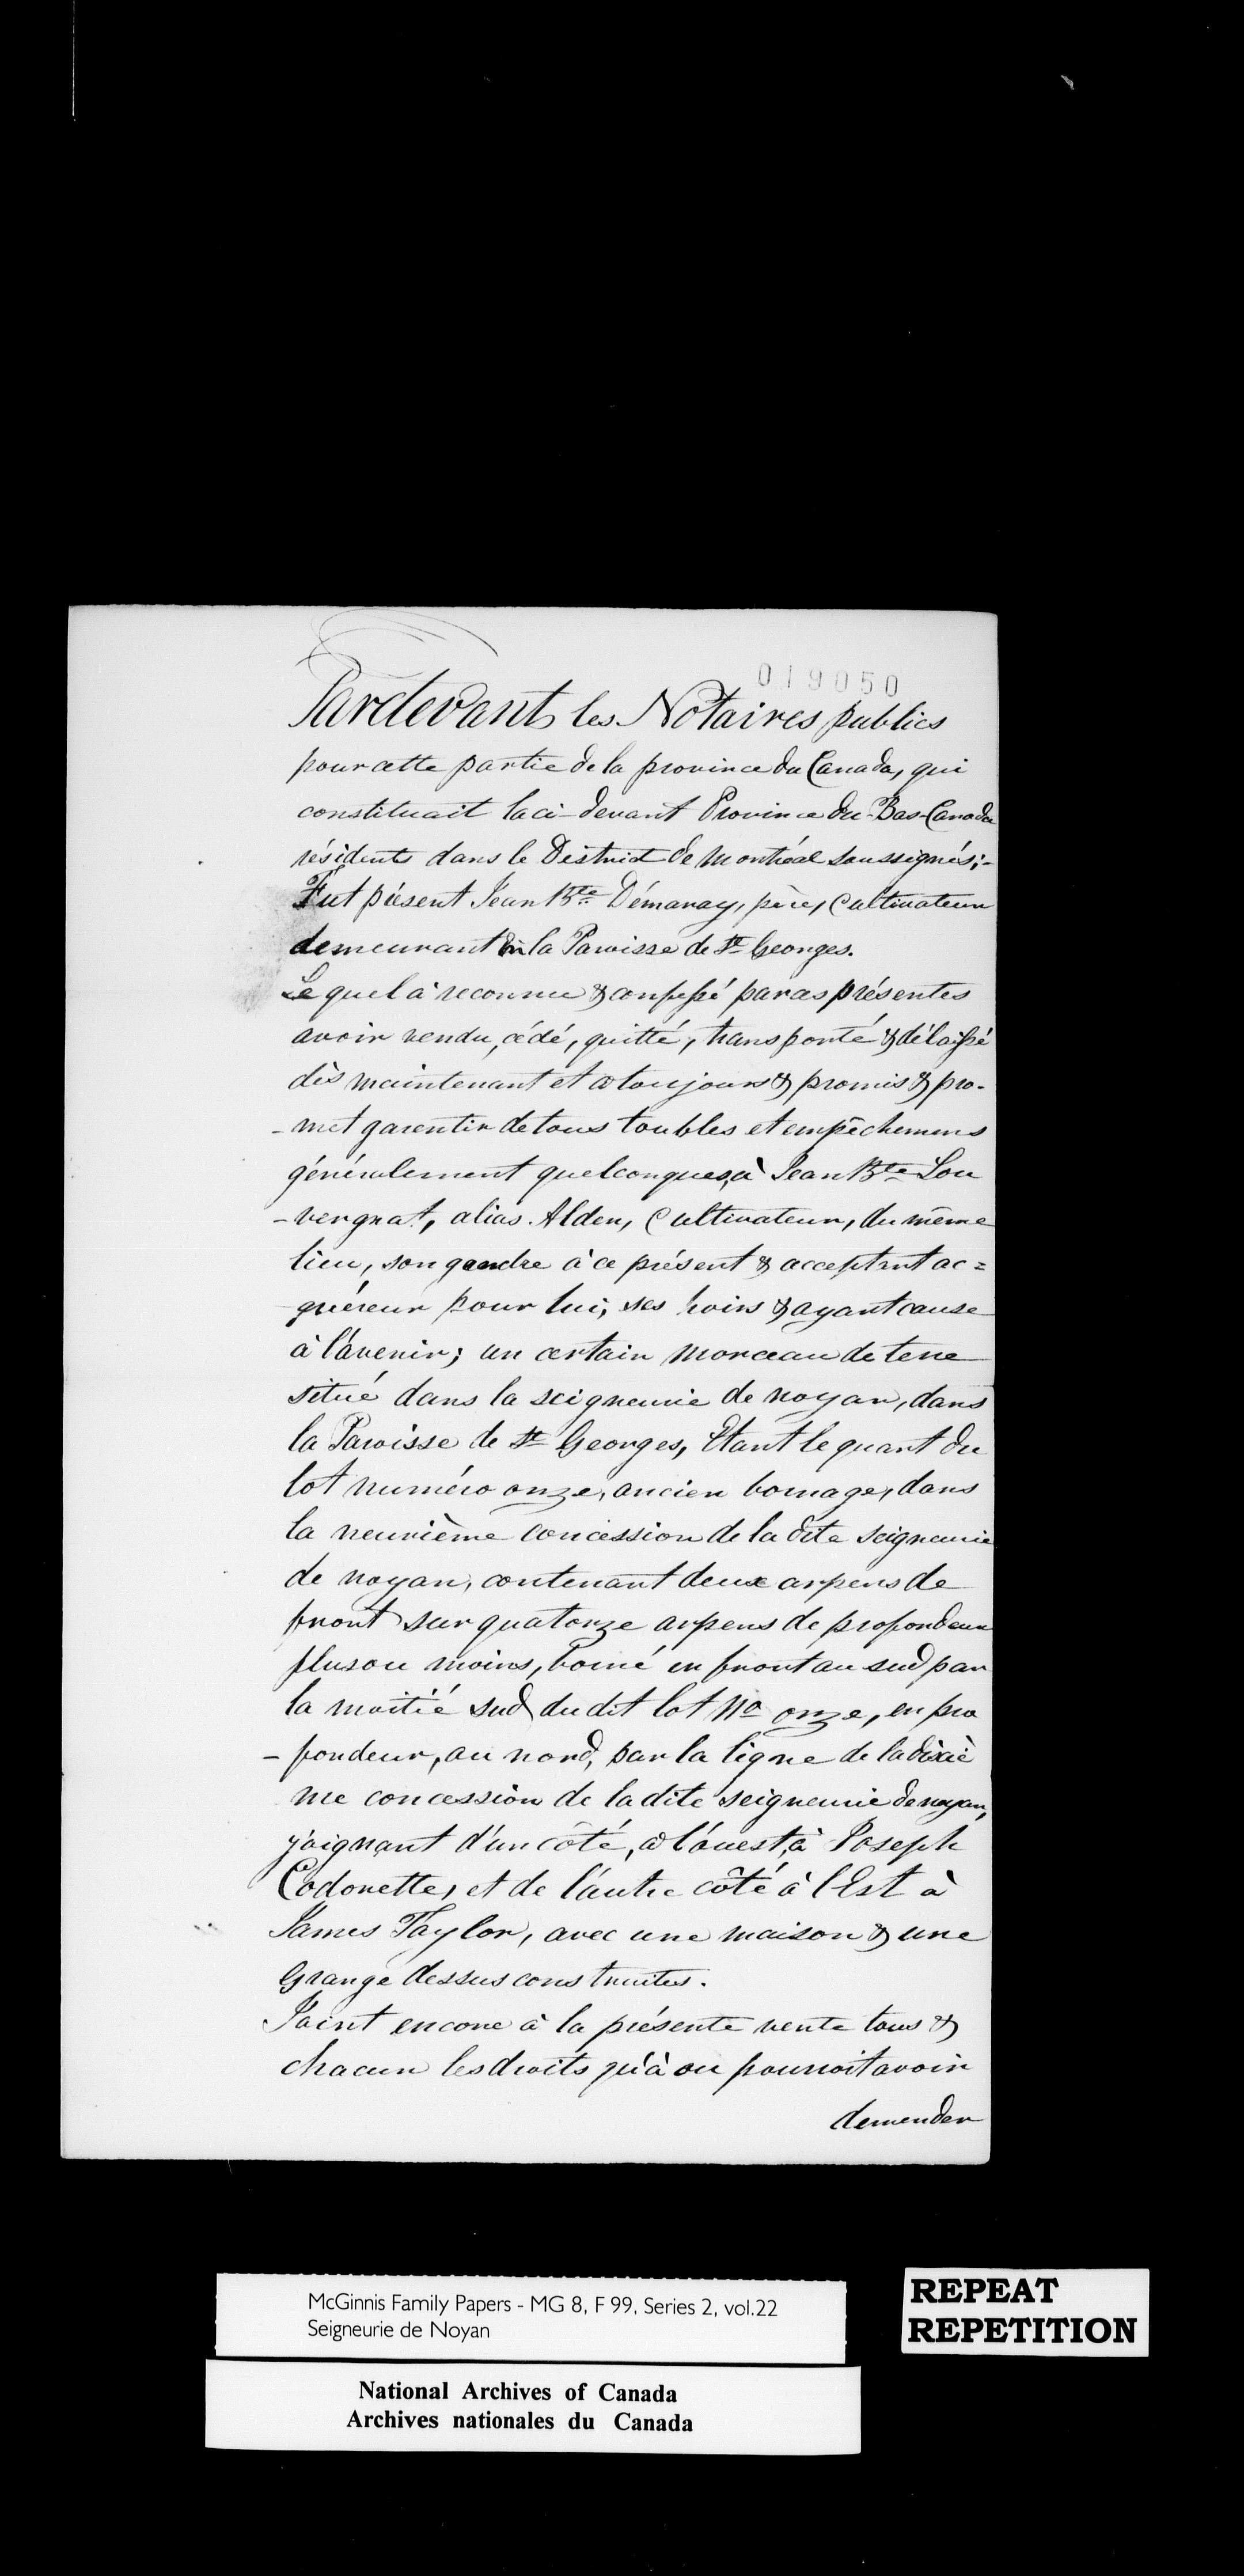 019050
Pardevant les Notaires publics
pour cette partie de la province du Canada, qui
constituait la ci-devant Province du Bas-Canada
résidents dans le District de Montréal soussignés;-
Fut présent Jean Bte Démaray, père, Cultivateur
demeurant en la Paroisse de St Georges.
Lequel à reconnu & confessé par ces présentes
avoir vendu, cédé, quitté, transporté & délaissé
dès maintenant et à toujours & promis & pro-
-met garentir de tous toubles et empêchemens
généralement quelconques, à Jean Bte Lou
-vergnat, alias Alden, Cultivateur, du même
lieu, son gendre à ce présent & acceptant ac=
quéreur pour lui, ses hoirs & ayant cause
à l'avenir; un certain morceau de terre
situé dans la seigneurie de noyan, dans
la Paroisse de St Georges, Etant le quart du
lot numéro onze, ancien bornage, dans
la neuvième concession de la dite seigneurie
de noyan, contenant deux arpens de
front sur quatorze arpens de profondeur
plus ou moins, borné en front au sud par
la moitié sud du dit lot No onze, en pro
-fondeur, au nord, par la ligne de la dixiè
me concession de la dite seigneurie de noyan,
joignant d'un côté, à l'ouest, à Joseph
Codonette, et de l'autre côté à l'Est à
James Taylor, avec une maison & une
Grange dessus construites.
Joint encore à la présente vente tous &
chacun les droits qu'à ou pourroit avoir
demender
McGinnis Family Papers - MG 8, F 99, Series 2, vol.22
Seigneurie de Noyan
REPEAT
REPETITION
National Archives of Canada
Archives nationales du Canada